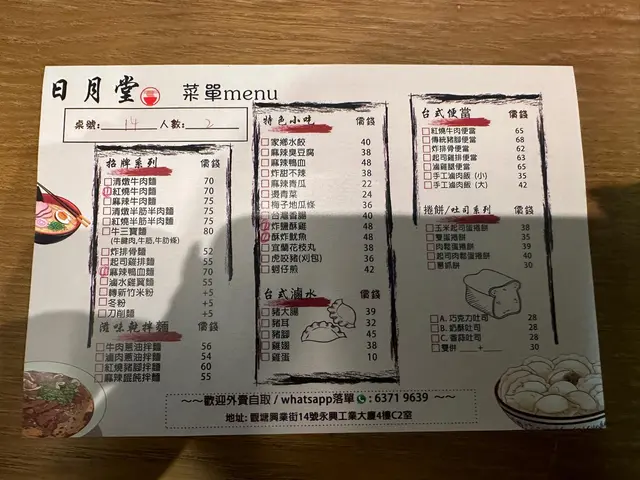 日月堂 菜單menu
桌號: 14 人數: 2
招牌系列 價錢
清燉牛肉麵 70
紅燒牛肉麵 70
麻辣牛肉麵 75
清燉半筋半肉麵 75
紅燒半筋半肉麵 75
牛三寶麵 80
(牛腱肉,牛筋,牛肋條)
炸排骨麵 52
起司雞排麵 55
麻辣鴨血麵 70
滷水雞翼麵 55
轉新竹米粉 +5
冬粉 +5
刀削麵 +5
滋味乾拌麵 價錢
牛肉蔥油拌麵 56
滷肉蔥油拌麵 54
紅燒豬腳拌麵 60
麻辣餛飩拌麵 55
特色小吃 價錢
家鄉水餃 40
麻辣臭豆腐 38
麻辣鴨血 48
炸甜不辣 38
麻辣青瓜 22
燙青菜 24
梅子地瓜條 36
台灣香腸 40
炸鹽酥雞 48
酥炸魷魚 48
宜蘭花枝丸 38
虎咬豬(刈包) 36
蚵仔煎 42
台式滷水 價錢
豬大腸 39
豬耳 32
豬腳 45
雞翅 38
雞蛋 10
台式便當 價錢
紅燒牛肉便當 65
傳統豬腳便當 68
炸排骨便當 62
起司雞排便當 63
滷雞腿便當 65
手工滷肉飯 (小) 35
手工滷肉飯 (大) 42
捲餅/吐司系列 價錢
玉米起司蛋捲餅 38
雙蛋捲餅 35
肉鬆蛋捲餅 39
起司肉鬆蛋捲餅 40
蔥抓餅 30
A. 巧克力吐司 28
B. 奶酥吐司 28
C. 香蒜吐司 28
雙併 ___+___ 30
~~歡迎外賣自取 / whatsapp落單 : 6371 9639 ~~
地址: 觀塘興業街14號永興工業大廈4樓C2室